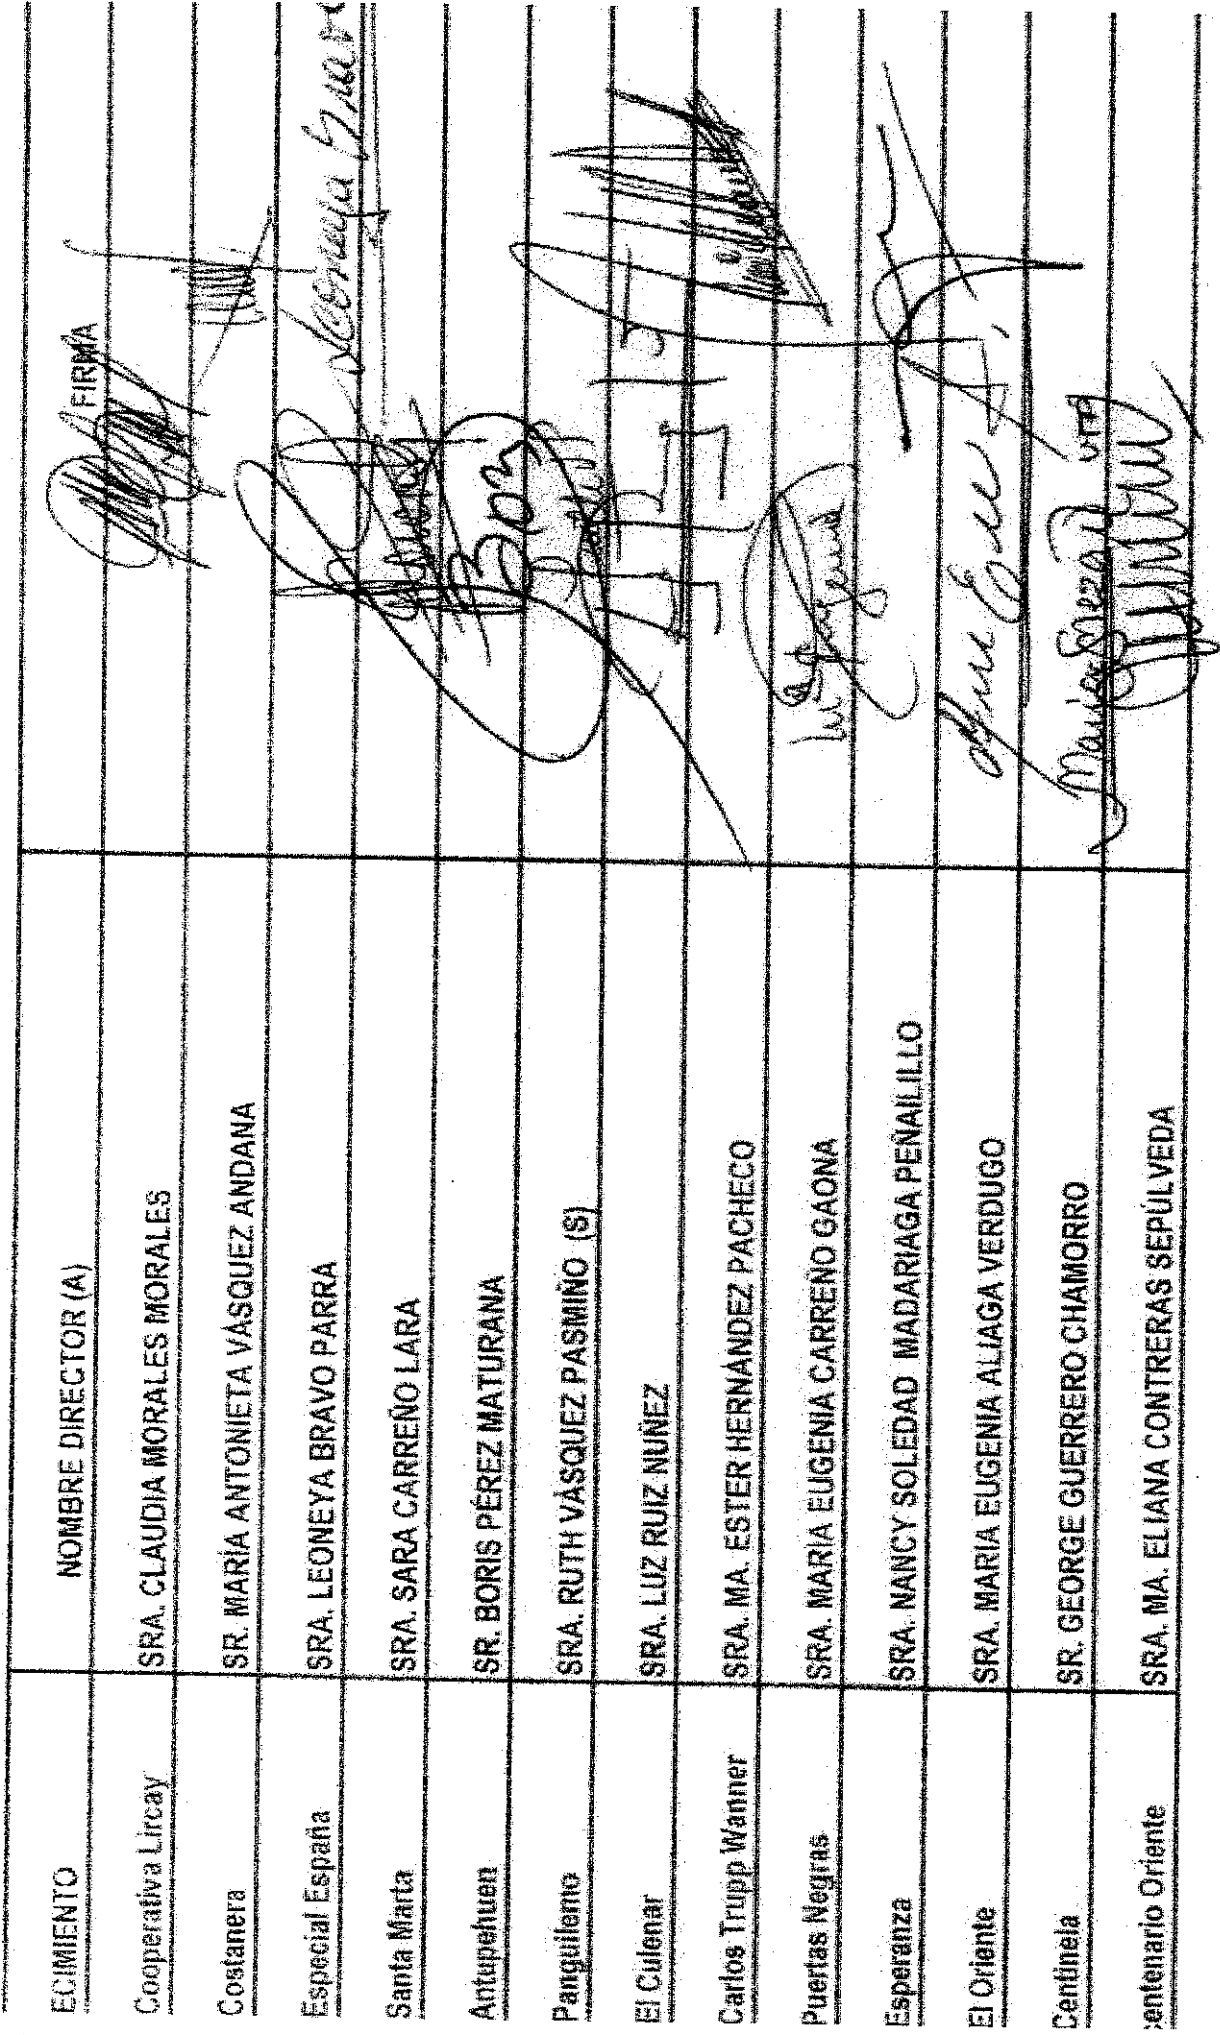 ECIMIENTO NOMBRE DIRECTOR (A) FIRMA
Cooperativa Lircay SRA. CLAUDIA MORALES MORALES
Costanera SR. MARÍA ANTONIETA VÁSQUEZ ANDANA
Especial España SRA. LEONEYA BRAVO PARRA Leoneya Bravo
Santa Marta SRA. SARA CARREÑO LARA
Antupehuen SR. BORIS PÉREZ MATURANA
Panguilemo SRA. RUTH VÁSQUEZ PASMIÑO (S)
El Culenar SRA. LUZ RUIZ NUÑEZ
Carlos Trupp Wanner SRA. MA. ESTER HERNÁNDEZ PACHECO
Puertas Negras SRA. MARIA EUGENIA CARREÑO GAONA
Esperanza SRA. NANCY SOLEDAD MADARIAGA PEÑAILILLO
El Oriente SRA. MARIA EUGENIA ALIAGA VERDUGO
Centinela SR. GEORGE GUERRERO CHAMORRO Meza UTP
centenario Oriente SRA. MA. ELIANA CONTRERAS SEPÚLVEDA